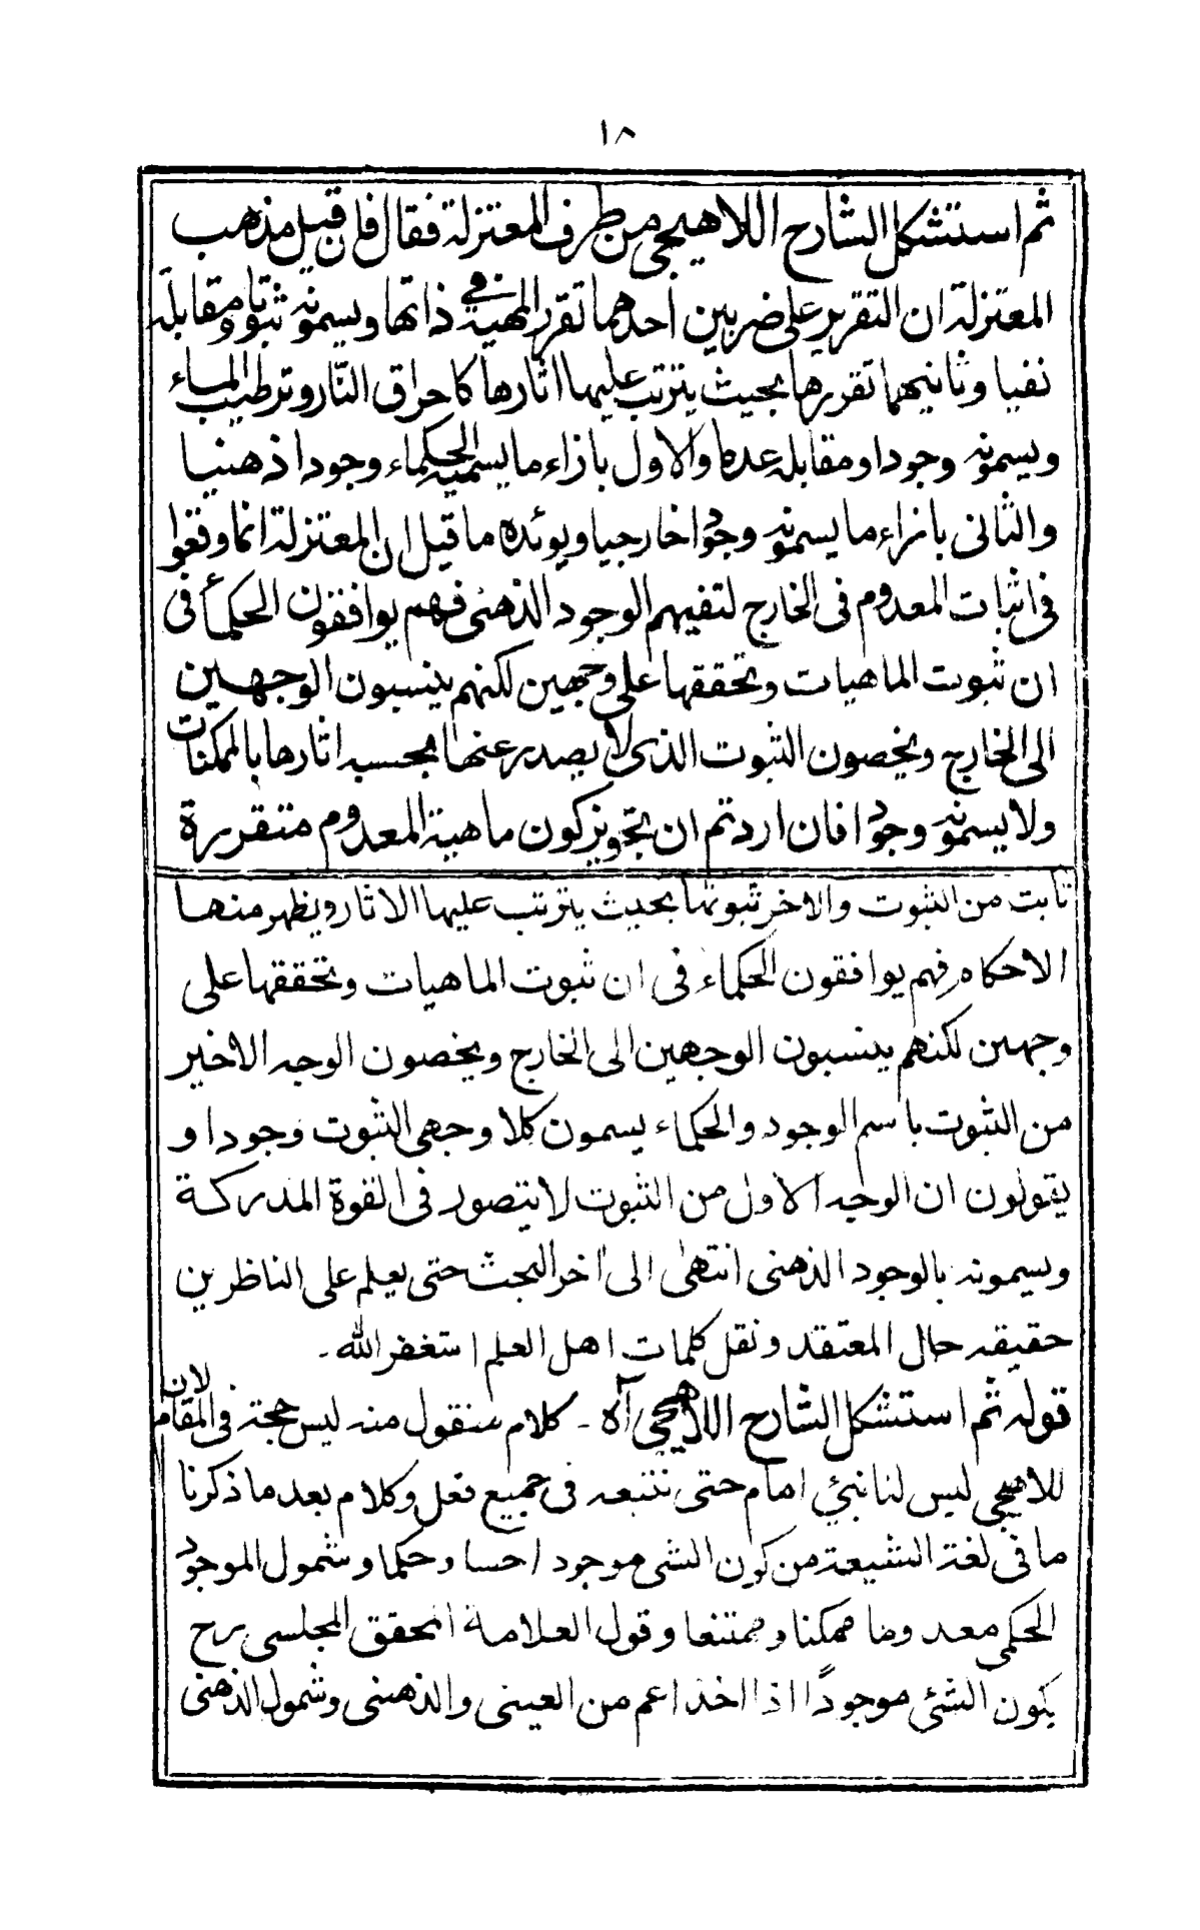 ١٨
ثم استشكل الشارح اللاهيجى من طرف المعتزلة فقال فان قيل مذهب
المعتزلة ان التقرير على ضربين احدهما تقرر المهية فى ذاتها ويسمونه ثبوتا ومقابله
نفيا وثانيهما تقررها بحيث يترتب عليها اثارها كاحراق النّار وترطيب الماء
ويسمونه وجودا ومقابله عدما والاول بازاء ما يسميه الحكماء وجودا ذهنيا
والثانى بازاء ما يسمونه وجودا خارجيا ويؤيده ما قيل ان المعتزلة انما وقعوا
فى اثبات المعدوم فى الخارج لنفيهم الوجود الذهنى فهم يوافقون الحكمأ فى
ان ثبوت الماهيات وتحققها على وجهين لكنهم ينسبون الوجهين
الى الخارج ويخصون الثبوت الذى لا يصدر عنها بحسبه اثارها بالممكنات
ولا يسمونه وجودا فان اردتم ان تجويز كون ماهية المعدوم متقررة
ثابت من الثبوت والاخر ثبوتها بحيث يترتب عليها الاثار ويظهر منها
الاحكام فهم يوافقون الحكماء فى ان ثبوت الماهيات وتحققها على
وجهين لكنهم ينسبون الوجهين الى الخارج ويخصون الوجه الاخير
من الثبوت باسم الوجود والحكماء يسمون كلا وجهى الثبوت وجودا و
يقولون ان الوجه الاول من الثبوت لا يتصور فى القوة المدركة
ويسمونه بالوجود الذهنى انتهىٰ الى اخر البحث حتى يعلم على الناظرين
حقيقه حال المعتقد ونقل كلمات اهل العلم استغفر الله ـ
قوله ثم استشكل الشارح اللاهيجى آه ـ كلام منقول منه ليس حجة فى المقام لان
للاهيجى ليس لنا نبئ امام حتى نتبعه فى جميع فعل وكلام بعد ما ذكرنا
ما فى لغة الشيعة من كون الشى موجود احسا وحكما وشمول الموجود
الحكمى معدوما ممكنا وممتنعا وقول العلامة المحقق المجلسى برح
يكون الشئ موجوداً اذا اخذ اعم من العينى والذهنى وشمول الذهنى